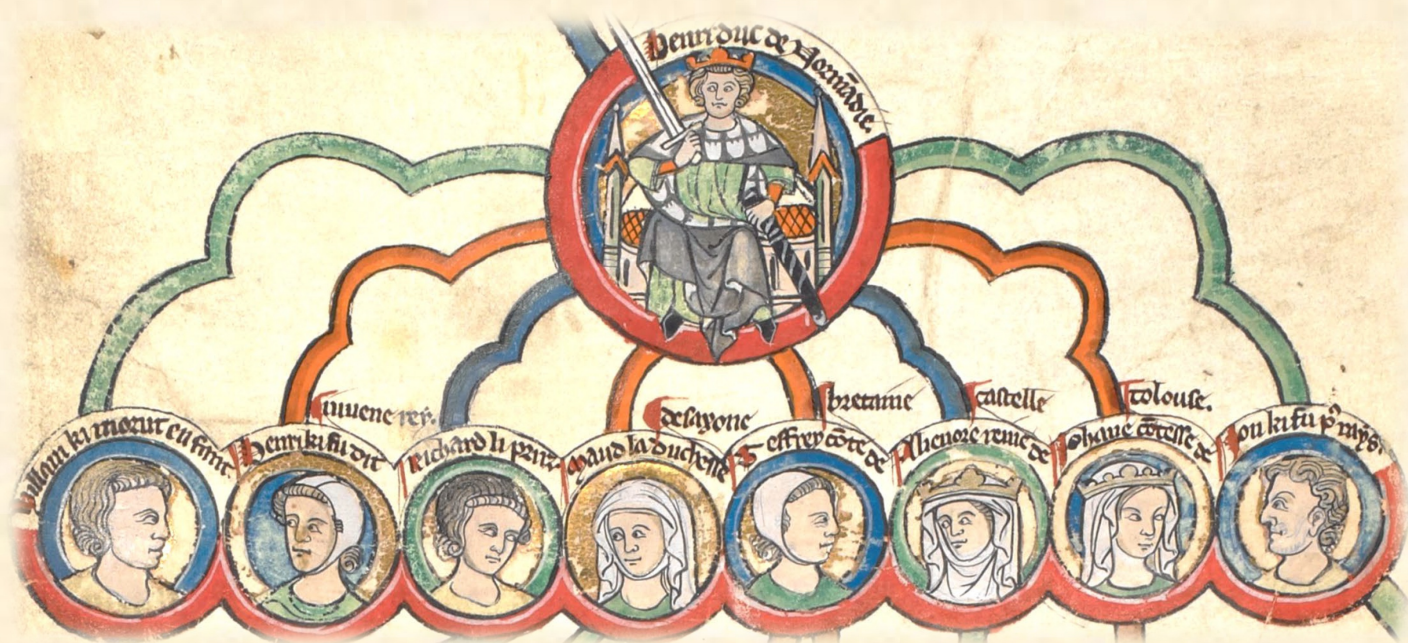 henri duc de Normādie.
Willam ki morut en
Henri ki fu dit
iuvene rey.
Richard li
Maud la duchesse
de saxone
Geffrey cōte de
bretaine
Alienore reine de
castelle
Johane cōtesse de
tolouse.
Jon ki fu